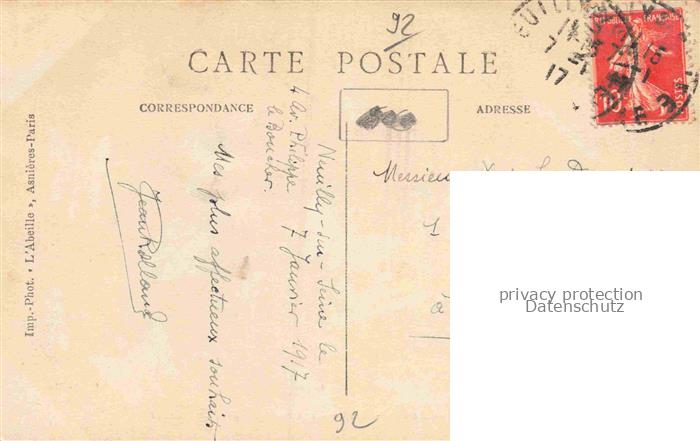 92
CARTE POSTALE
CORRESPONDANCE
ADRESSE
RÉPUBLIQUE FRANÇAISE
POSTES
10
Neuilly-sur-Seine le
7 Janvier 1917
4 av. Philippe
le Boucher.
Mes plus affectueux souhaits
Jean Rolland
Imp.-Phot. « L'Abeille », Asnières-Paris
Messieu
à
92
privacy protection
Datenschutz